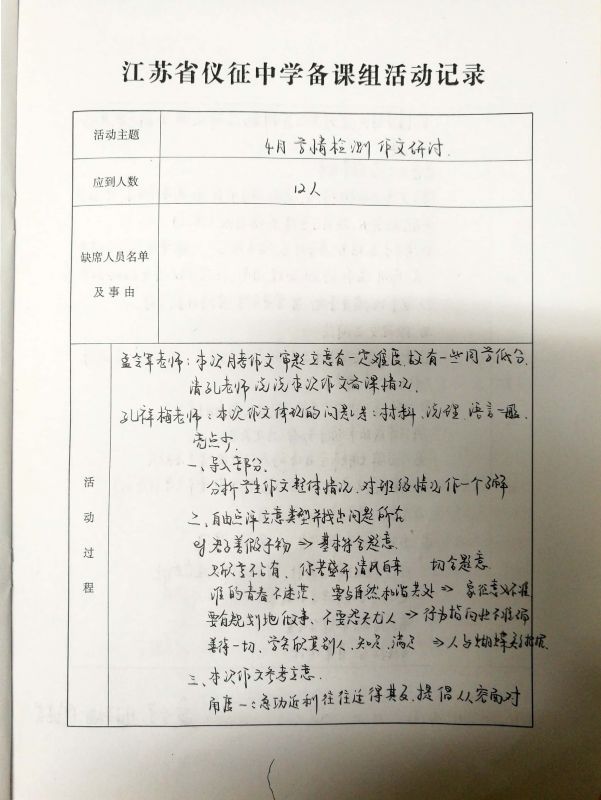 江苏省仪征中学备课组活动记录
活动主题
4月学情检测作文研讨.
应到人数
12人
缺席人员名单
及事由
活动过程
老师:本次月考作文审题立意有一定难度,故有一些同学低分.
请孔老师说说本次作文备课情况.
孔祥梅老师:本次作文体现的问题是:材料、说理、语言一般.
亮点少.
一、导入部分.
分析学生作文整体情况,对班级情况作一个了解
二、自由点评立意类型并找出问题所在
君子善假于物 → 基本符合题意.
只欣赏不占有、你若盛开清风自来 切合题意.
谁的青春不迷茫、要与自然和谐共处 → 象征意义不准
要有规划地做事、不要怨天尤人 → 行为指向性不准确
善待一切、学会欣赏别人、知足、满足 → 人与蝴蝶关系
三、本次作文参考立意.
角度一:急功近利往往适得其反,提倡从容面对